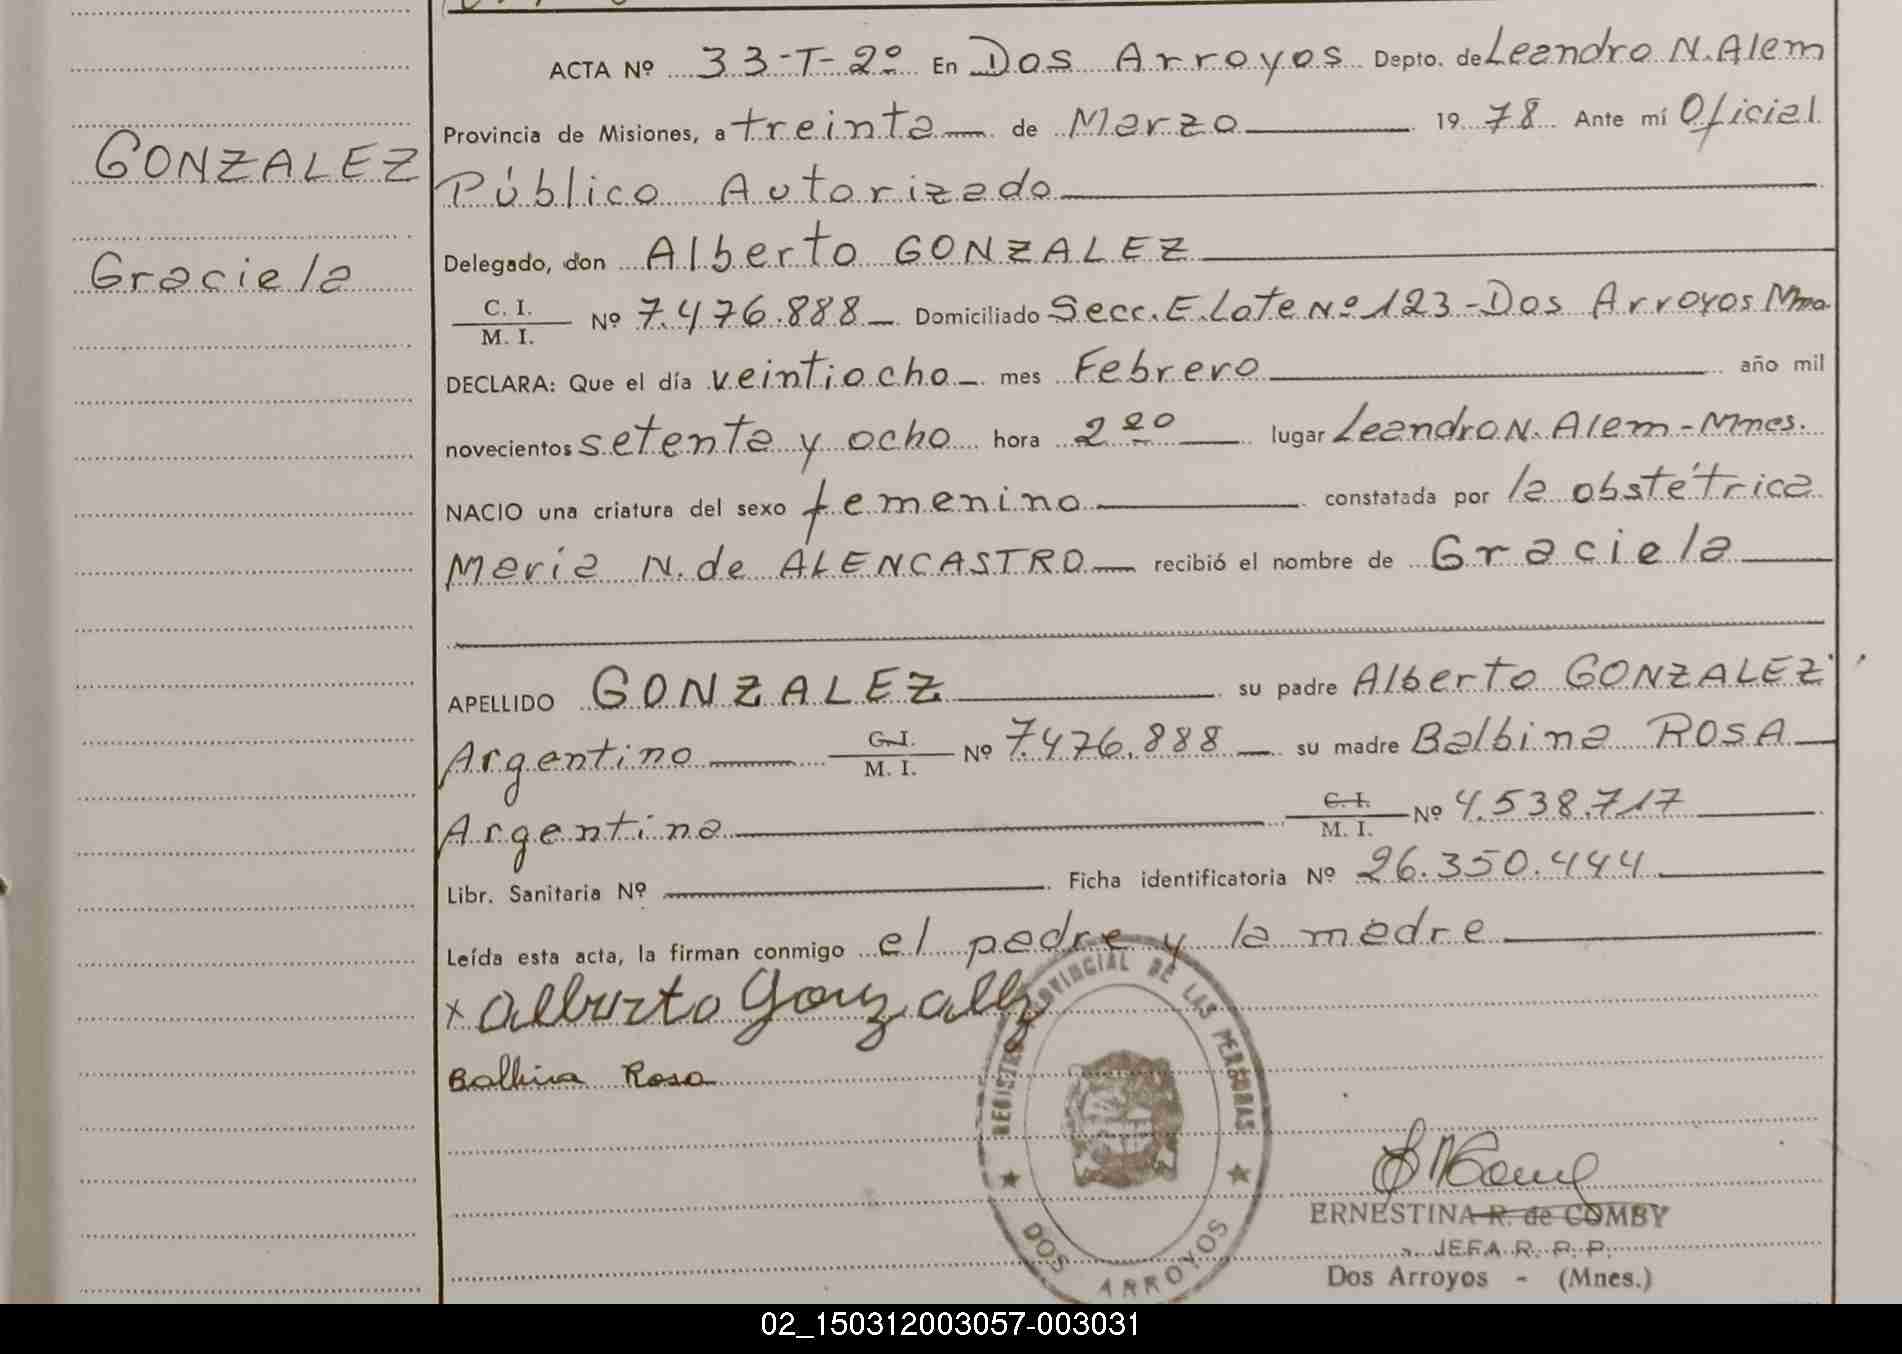 GONZALEZ
Graciela
ACTA Nº 33-T-2º En Dos Arroyos Depto. de Leandro N. Alem
Provincia de Misiones, a treinta de Marzo 19 78 Ante mí Oficial
Público Autorizado
Delegado, don Alberto GONZALEZ
C. I.
M. I. Nº 7.476.888 Domiciliado Secc. E. Lote Nº 123 - Dos Arroyos
DECLARA: Que el día veintiocho mes Febrero año mil
novecientos setenta y ocho hora 2 20 lugar Leandro N. Alem - Mnes.
NACIO una criatura del sexo femenino constatada por la obstétrica
María N. de ALENCASTRO recibió el nombre de Graciela
APELLIDO GONZALEZ su padre Alberto GONZALEZ
Argentino C. I.
M. I. Nº 7.476.888 su madre Balbina ROSA
Argentina C. I.
M. I. Nº 4.538.717
Libr. Sanitaria Nº Ficha identificatoria Nº 26.350.444
Leída esta acta, la firman conmigo el padre y la madre
x Alberto Gonzalez
Balbina Rosa
REGISTRO PROVINCIAL DE LAS PERSONAS
DOS ARROYOS
ERNESTINA R. de COMBY
JEFA R. P. P.
Dos Arroyos - (Mnes.)
02_150312003057-003031